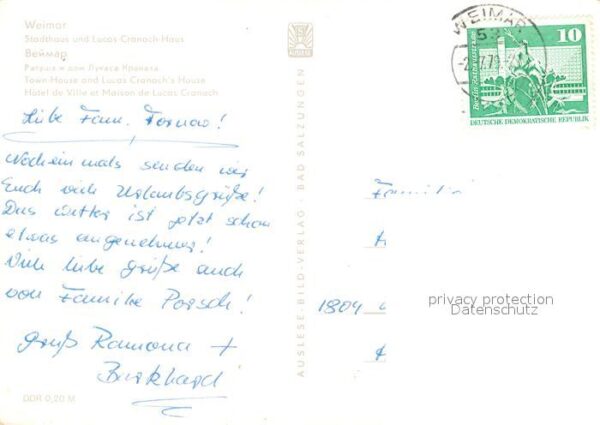 Weimar
Stadthaus und Lucas Cranach Haus
Веймар
Ратуша и дом Лукаса Кранаха
Town-House and Lucas Cranach's House
Hôtel de Ville et Maison de Lucas Cranach
Liebe Fam. Tornao!
Nocheinmals senden wir
Euch viele Urlaubsgrüße!
Das Wetter ist jetzt schon
etwas angenehmer!
Viele liebe Grüße auch
von Familie Porsch!
Gruß Ramona +
Burkhard
DDR 0,20 M
AUSLESE-BILD-VERLAG · BAD SALZUNGEN
WEIMAR
53
10
DEUTSCHE DEMOKRATISCHE REPUBLIK
Familie
1804
privacy protection
Datenschutz